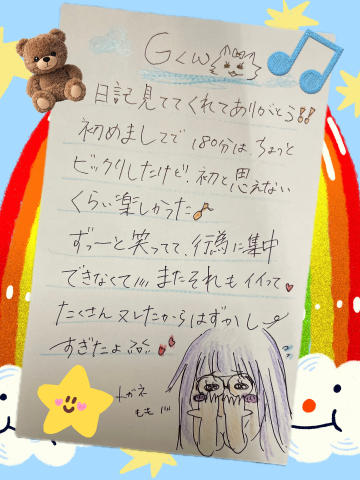 Gくん
日記見ててくれてありがとう!!
初めましてで180分は、ちょっと
ビックリしたけど、初と思えない
くらい楽しかった
ずっーと笑ってて、行為に集中
できなくて/// またそれもイイって
たくさんヌレたからはずかし
すぎたよ
メガネ
もも ///